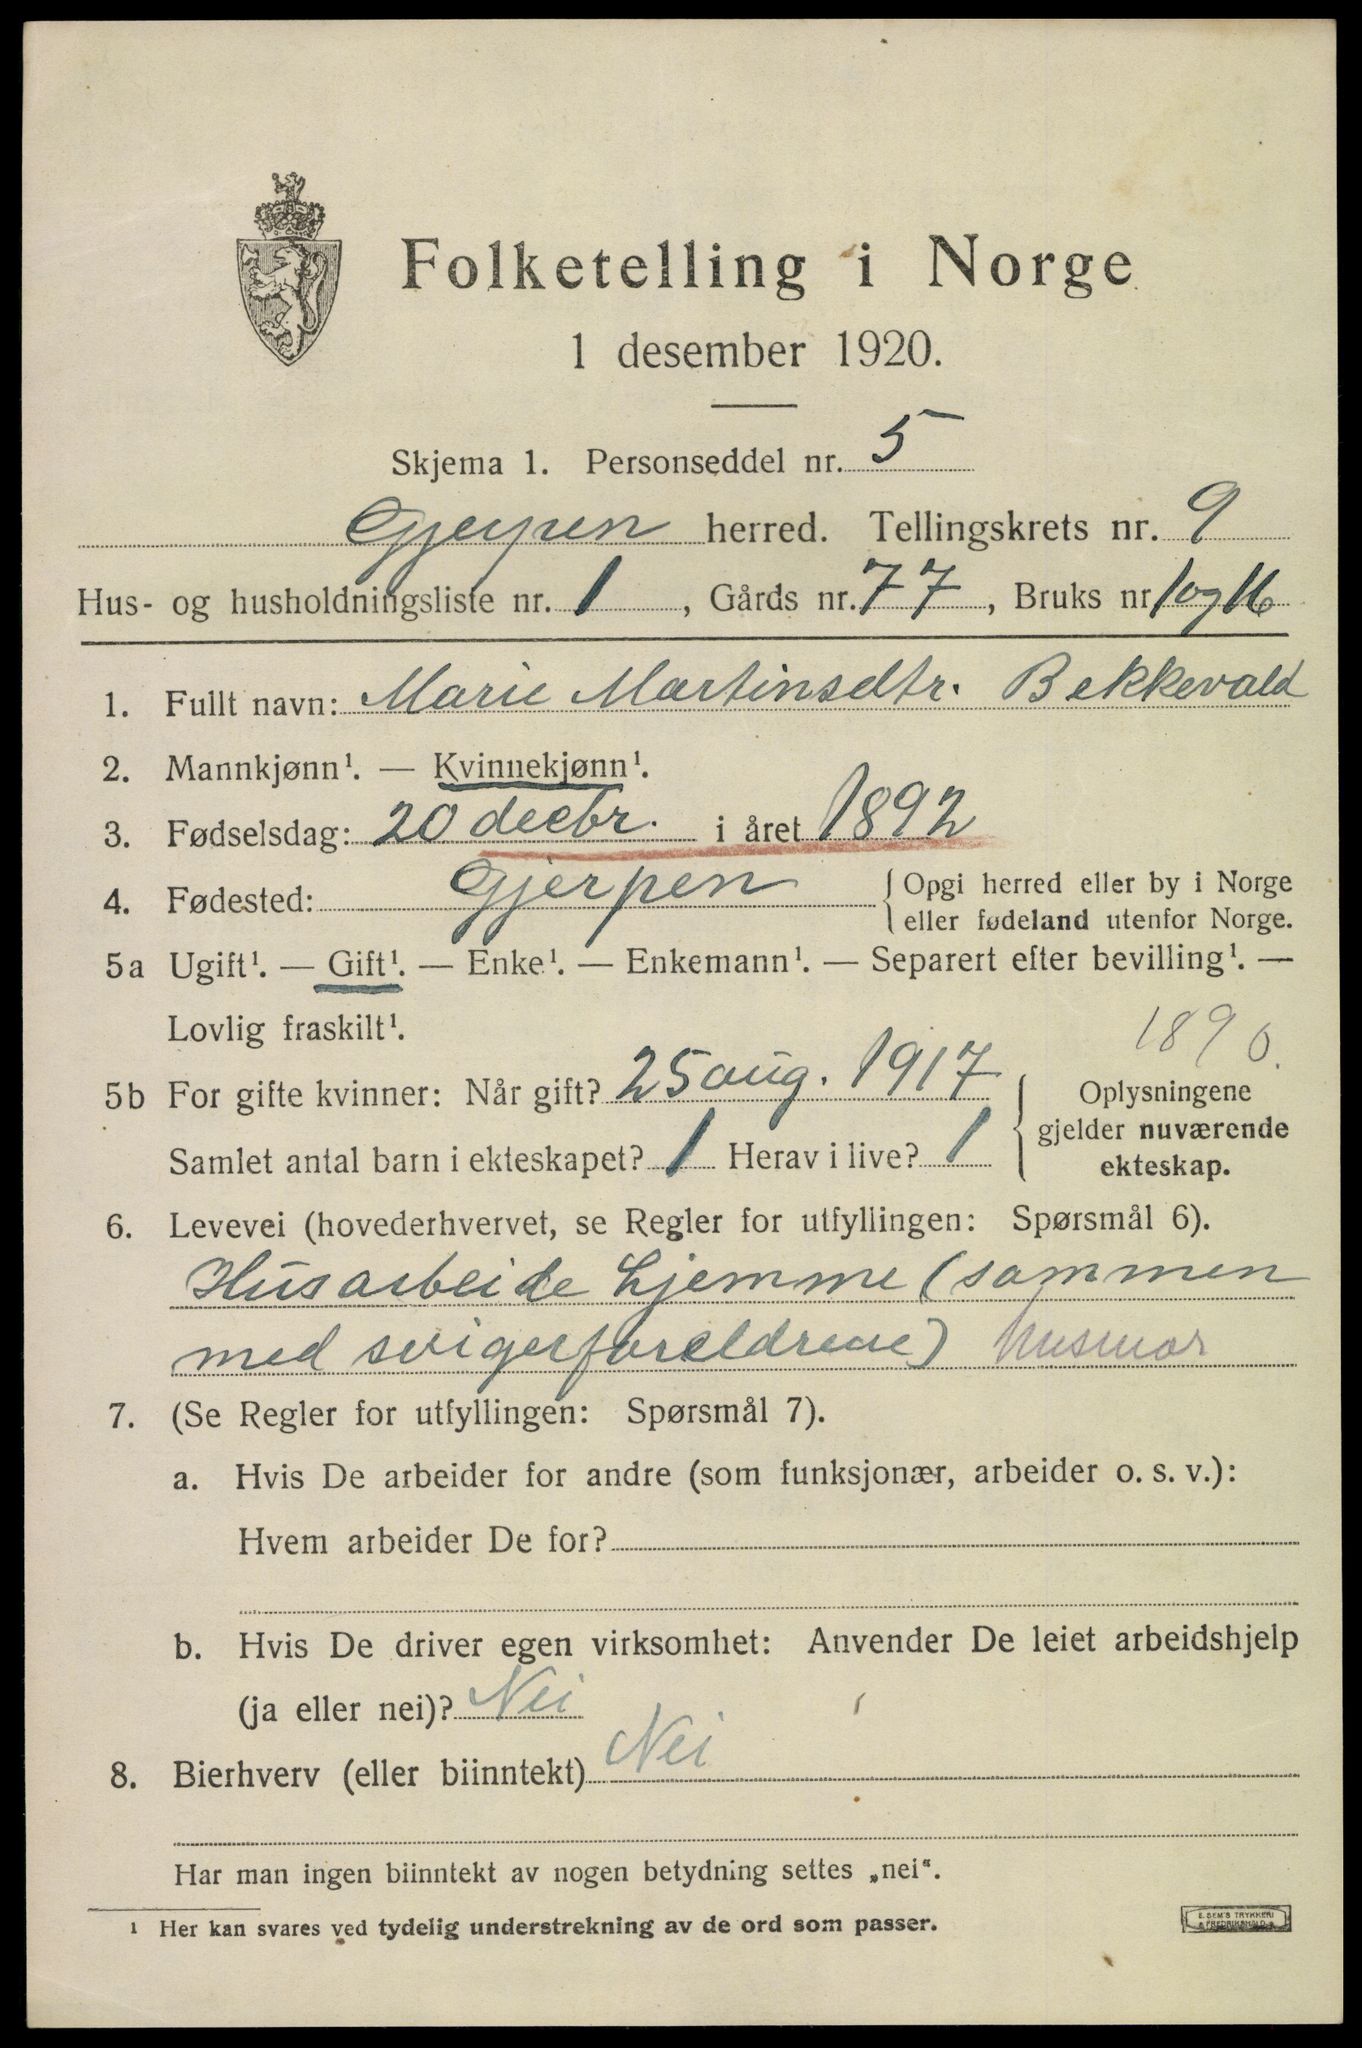 Folketelling i Norge
1 desember 1920.
Skjema 1. Personseddel nr. 5
Gjerpen herred. Tellingskrets nr. 9
Hus- og husholdningsliste nr. 1, Gårds nr. 77, Bruks nr 1 og 16
1. Fullt navn: Marie Martinsdtr. Bekkevald
2. Mannkjønn¹. — Kvinnekjønn¹.
3. Fødselsdag: 20 decbr. i året 1892
4. Fødested: Gjerpen { Opgi herred eller by i Norge
eller fødeland utenfor Norge.
5a Ugift¹. — Gift¹. — Enke¹. — Enkemann¹. — Separert efter bevilling¹. —
Lovlig fraskilt¹.
1890.
5b For gifte kvinner: Når gift? 25 aug. 1917 { Oplysningene
gjelder nuværende
ekteskap.
Samlet antal barn i ekteskapet? 1 Herav i live? 1
6. Levevei (hovederhvervet, se Regler for utfyllingen: Spørsmål 6).
Husarbeide hjemme (sammen
med svigerforeldrene) husmor
7. (Se Regler for utfyllingen: Spørsmål 7).
a. Hvis De arbeider for andre (som funksjonær, arbeider o. s. v.):
Hvem arbeider De for?
b. Hvis De driver egen virksomhet: Anvender De leiet arbeidshjelp
(ja eller nei)? Nei
8. Bierhverv (eller biinntekt) Nei
Har man ingen biinntekt av nogen betydning settes „nei“.
¹ Her kan svares ved tydelig understrekning av de ord som passer.
E. SEM'S TRYKKERI
FREDRIKSHALD